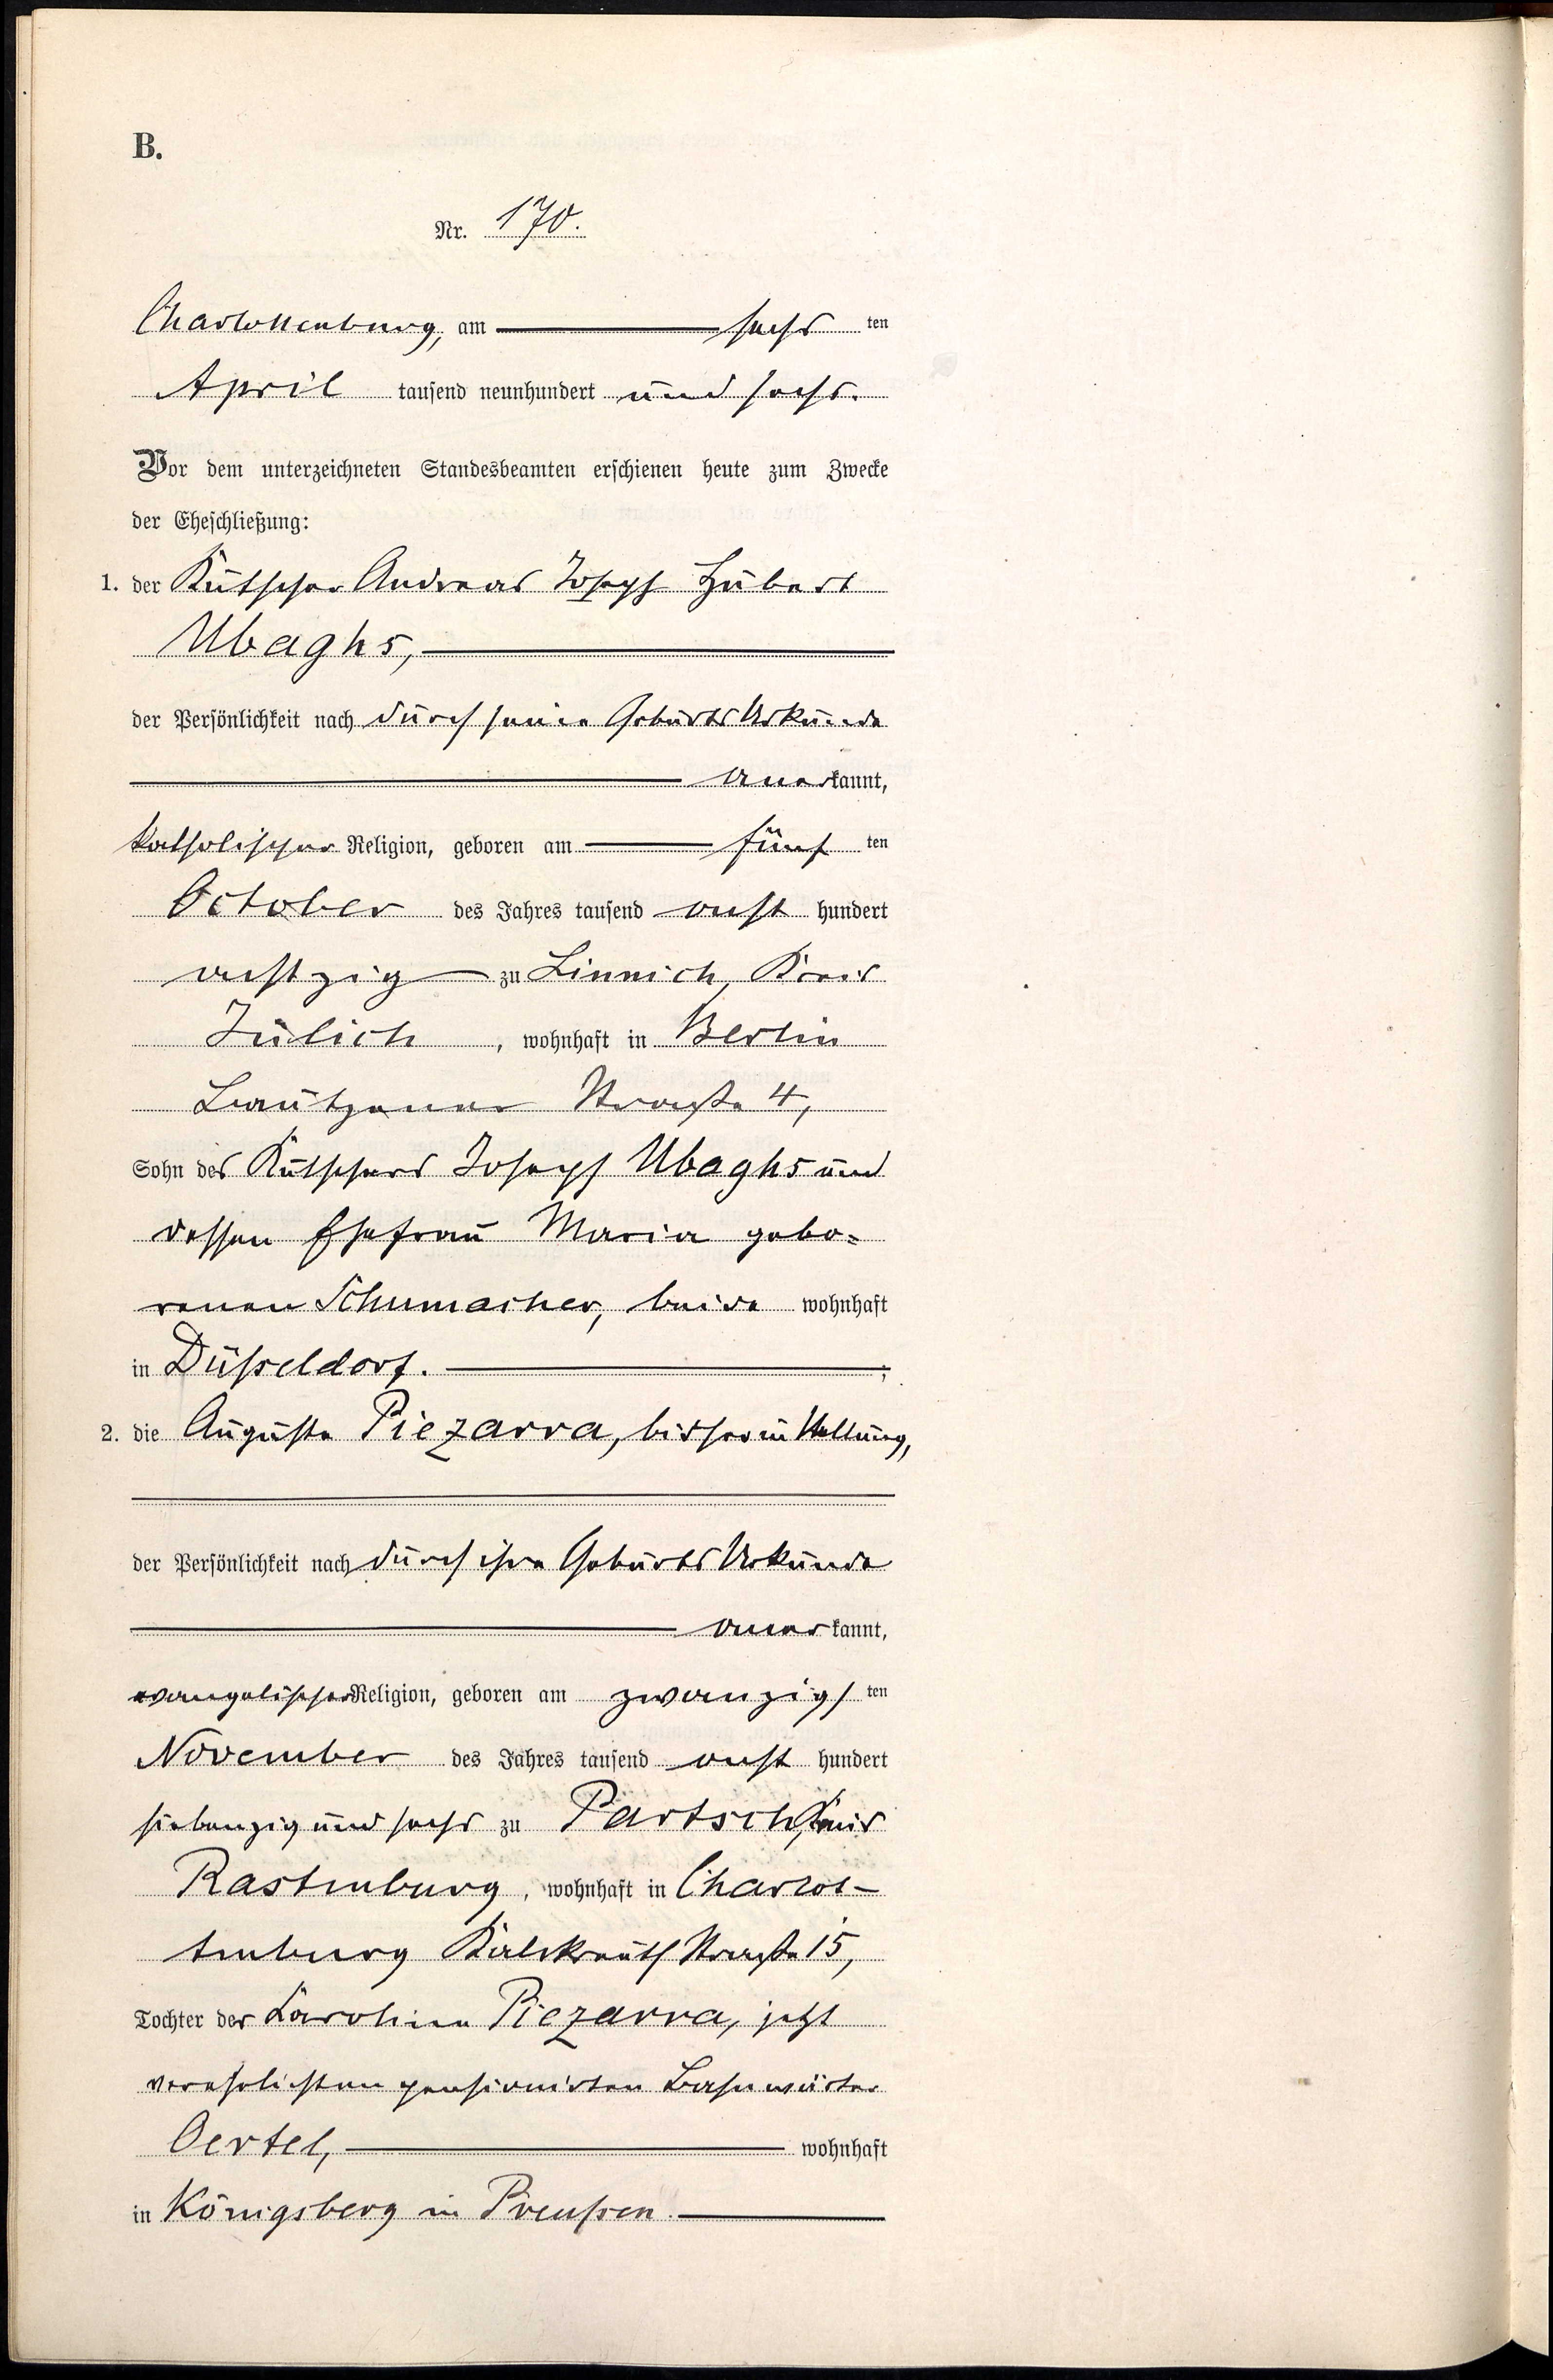 B.
Nr. 170.
Charlottenburg, am sechs ten
April tausend neunhundert und sechs.
Vor dem unterzeichneten Standesbeamten erschienen heute zum Zwecke
der Eheschließung:
1. der Kutscher Andreas Joseph Hubert
Ubaghs,
der Persönlichkeit nach durch seine Geburts Urkunde
anerkannt,
katholischer Religion, geboren am fünf ten
October des Jahres tausend acht hundert
achtzig zu Linnich, Kreis
Jülich, wohnhaft in Berlin
Bautzener Straße 4,
Sohn des Kutschers Joseph Ubaghs und
dessen Ehefrau Maria gebo-
renen Schumacher, beide wohnhaft
in Düsseldorf. ;
2. die Auguste Piezarra, bisher in Stellung,
der Persönlichkeit nach durch ihre Geburts Urkunde
anerkannt,
evangelischer Religion, geboren am zwanzigsten
November des Jahres tausend acht hundert
siebenzig und sechs zu Partsch, Kreis
Rastenburg, wohnhaft in Charlot-
tenburg Kalckreuth Straße 15,
Tochter der Karoline Piezarra, jetzt
verehelichten pensionirten Bahnwärter
Oertel, wohnhaft
in Königsberg in Preußen.